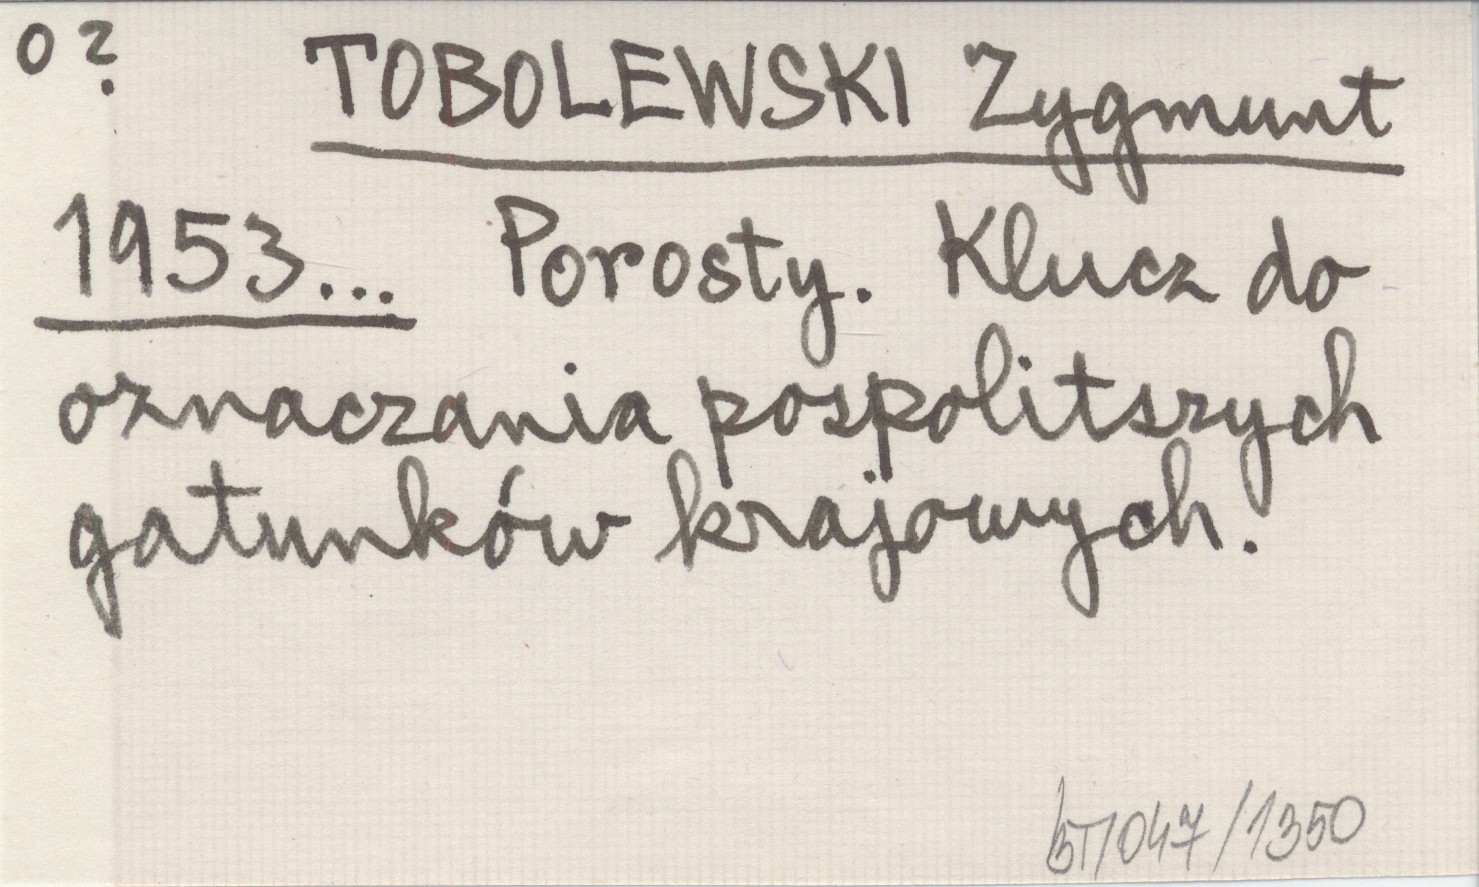 o ?
TOBOLEWSKI Zygmunt
1953... Porosty. Klucz do
oznaczania pospolitszych
gatunków krajowych.
/1350